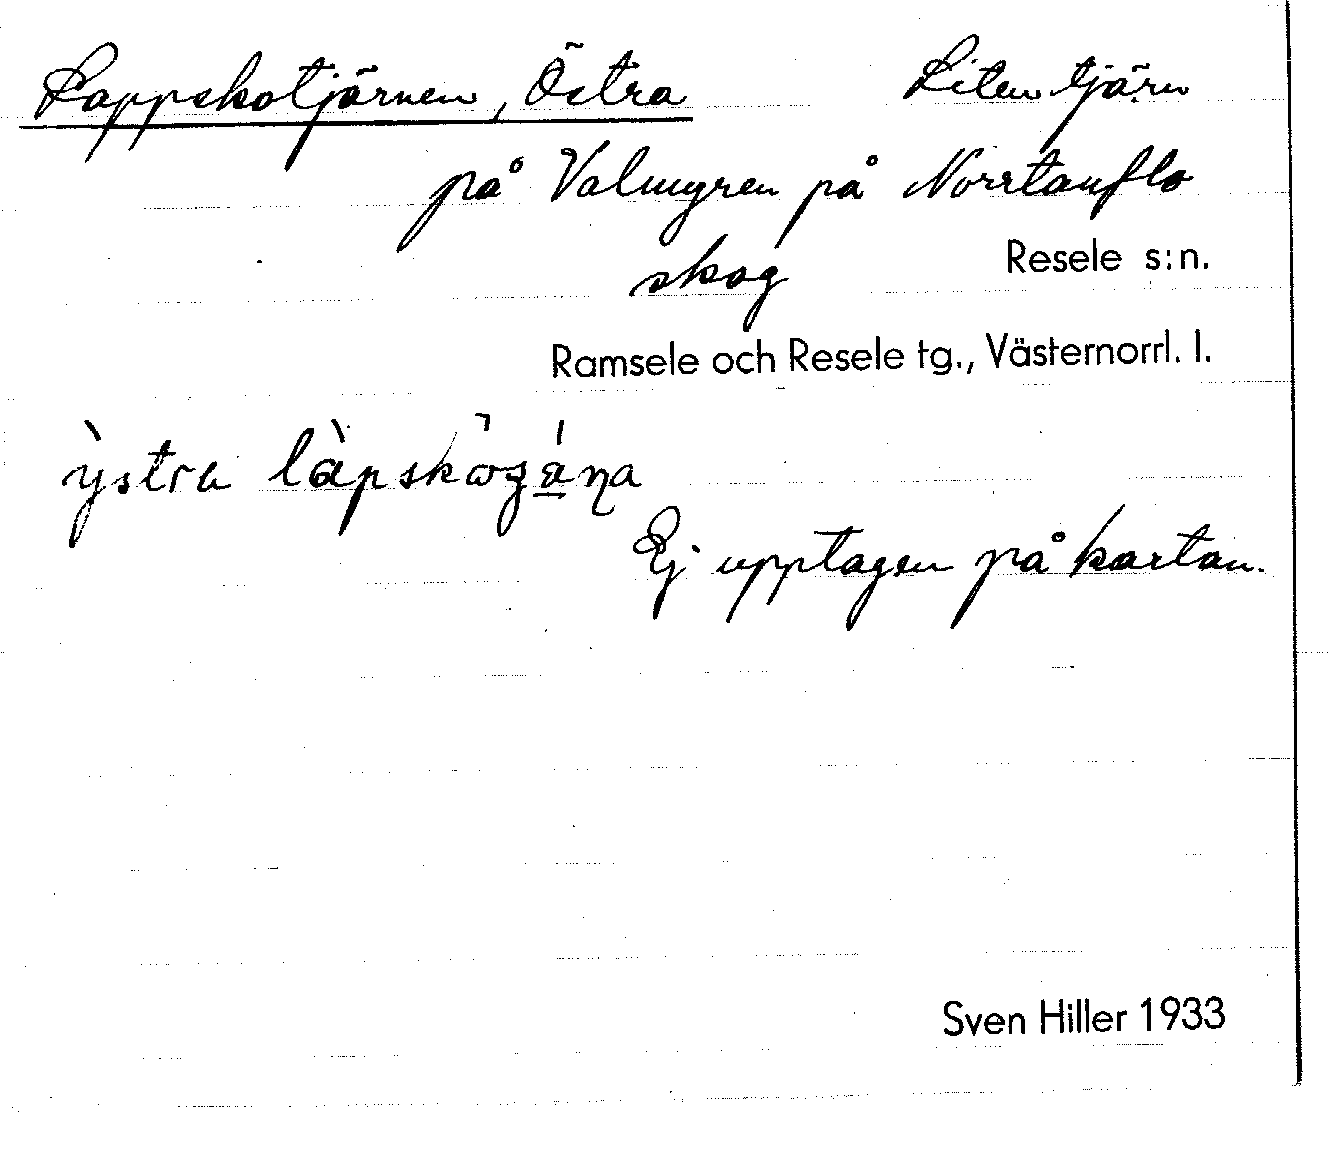 Lappskotjärnen, Östra Liten tjärn
på Valmyren på Norrtanflo
skog Resele s:n.
Ramsele och Resele tg., Västernorrl. l.
ỳstra
Ej upptagen på kartan.
Sven Hiller 1933